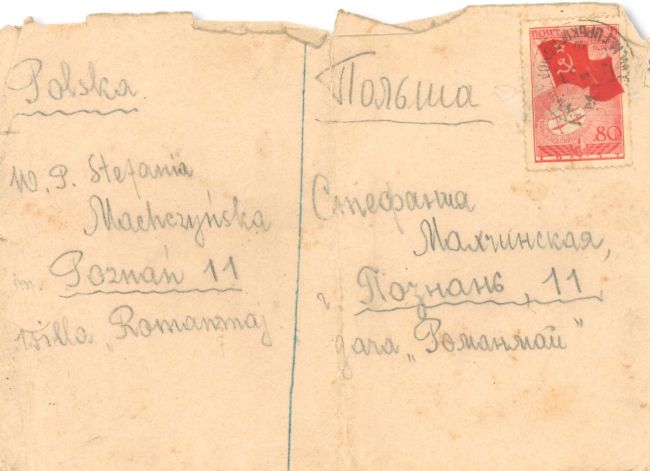 Polska
W. P. Stefania
Machczyńska
m. Poznań 11
willa „Romanmaj
Польша
Стефания
Малчинская,
г Познань, 11
дача „Романмай“
80